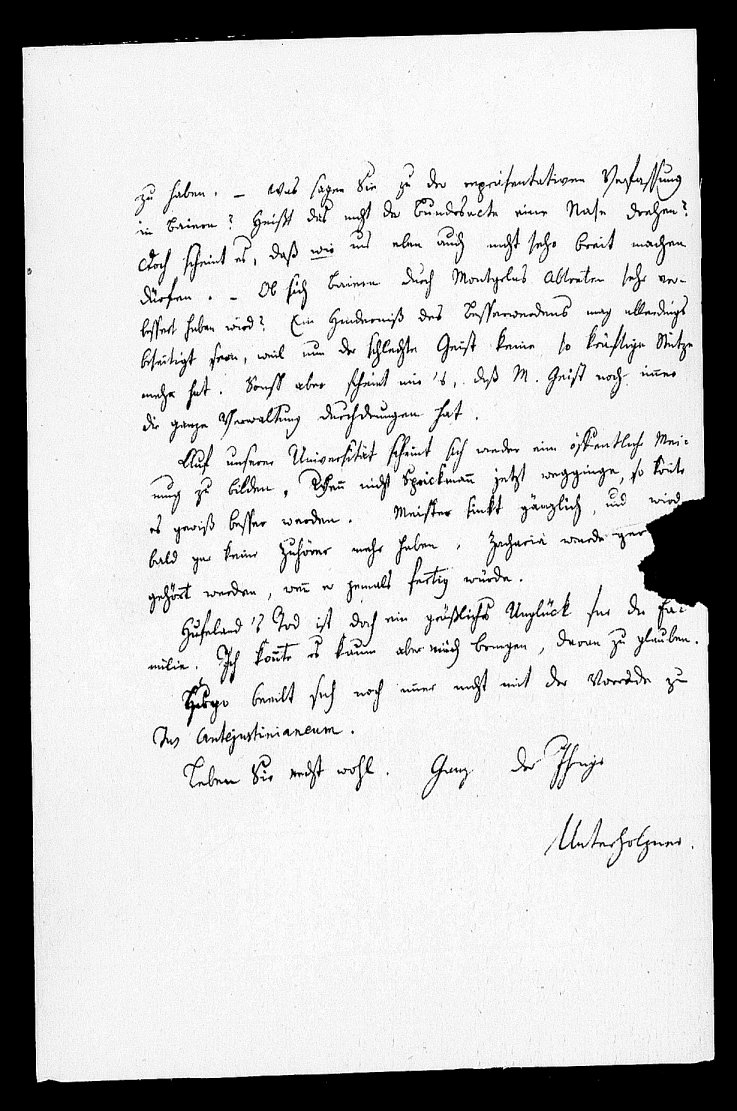 zu haben. – Was sagen Sie zu der repräsentativen Verfassung
in Baiern? Heißt das nicht der Bundesacte eine Nase drehen?
Doch scheint es, daß wir uns eben auch nicht sehr breit machen
dürfen. – Ob sich Baiern durch Montgelas Abtreten sehr ver-
bessert haben wird? Ein Hinderniß des Besserwerdens mag allerdings
beseitigt seyn, weil nun der schlechte Geist keine so kräftige Stütze
mehr hat. Sonst aber scheint mir's, daß M. Geist noch im̅er
die ganze Verwaltung durchdrungen hat.
Auf unserer Universität scheint sich wieder eine öffentliche Mei-
nung zu bilden. Wen̅ nicht Sprickman̅ jetzt wegginge, so kön̅te
es gewiß besser werden. Meister sinkt gänzlich, und wird
bald gar keine Zuhörer mehr haben. Zachariä würde ger
gehört werden, wen̅ er jemals fertig würde.
Hufeland's Tod ist doch ein gräßliches Unglück für die Fa-
milie. Ich kon̅te es kaum über mich bringen, daran zu glauben.
Hugo beeilt sich noch im̅er nicht mit der Vorrede zu
Jus Antejustinianeum.
Leben Sie recht wohl. Ganz der Ihrige
Unterholzner.